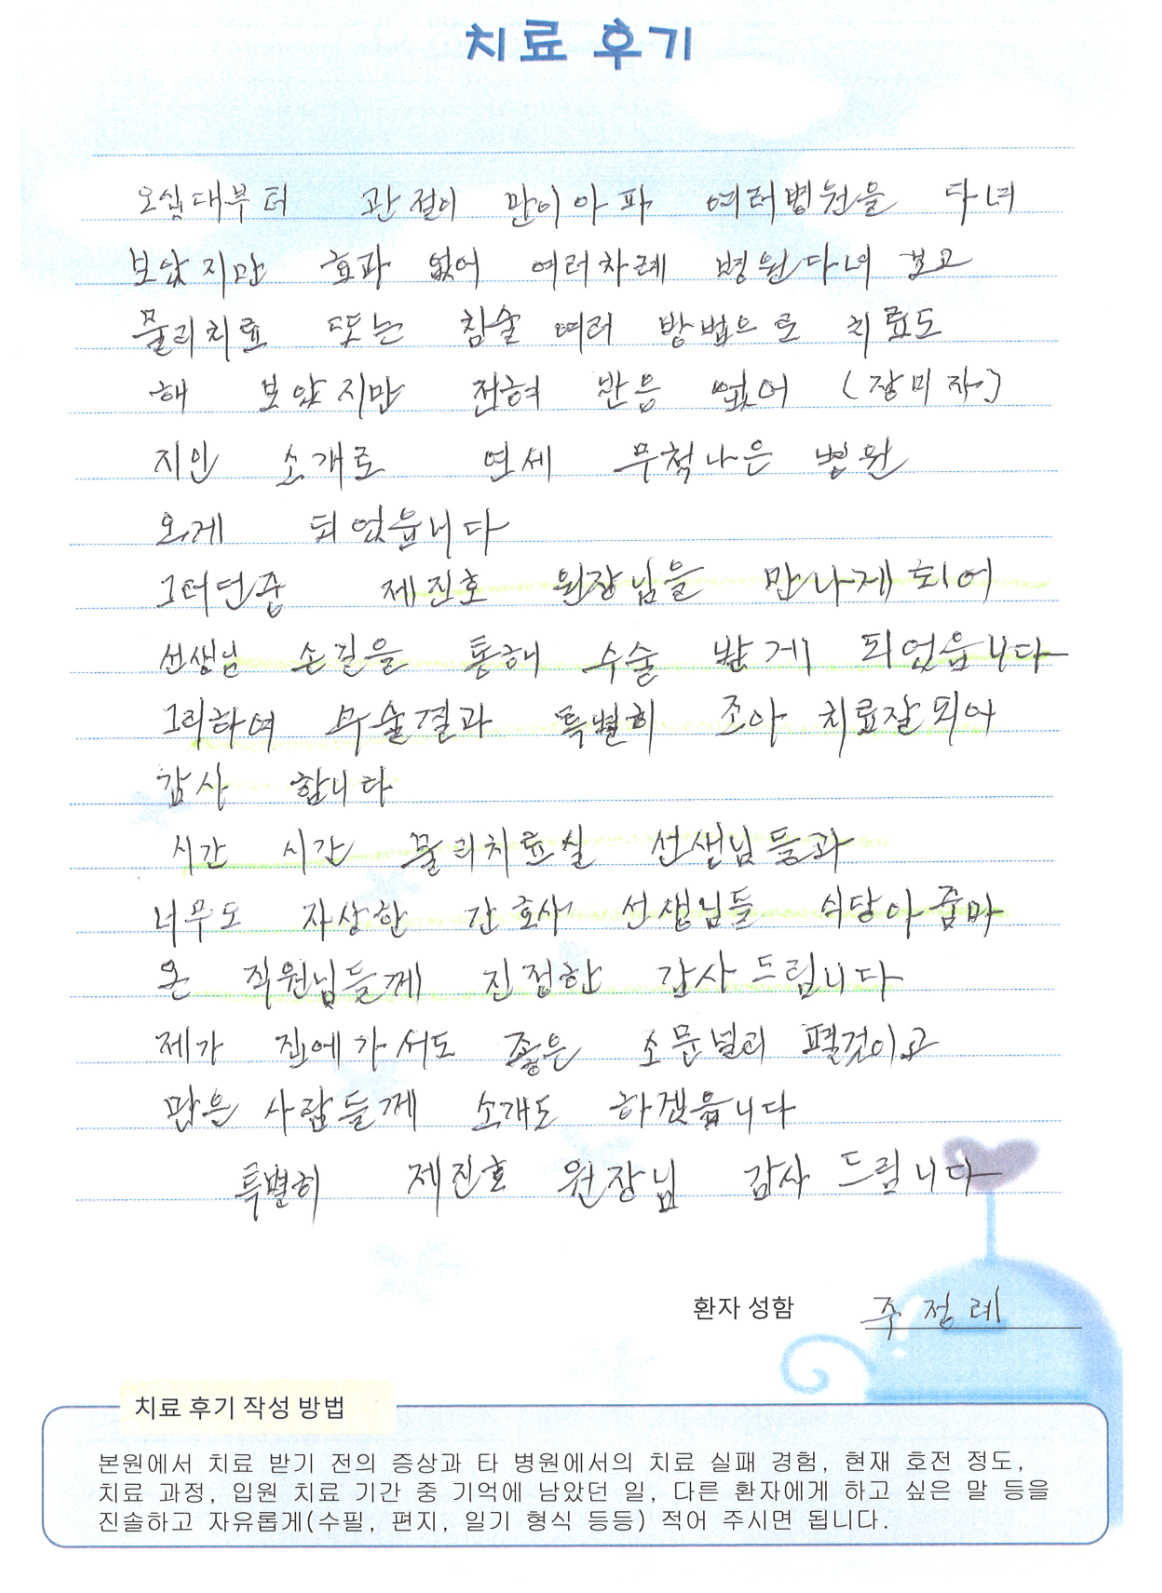 치료 후기
오십대부터 관절이 만이아파 여러병원을 다녀
보았지만 효과 없어 여러차례 병원다녀 보고
물리치료 또는 침술 여러 방법으로 치료도
해 보았지만 전혀 반응 없어 (장미자)
지인 소개로 연세 무척나은 병원
오게 되었읍니다
그러던중 제진호 원장님을 만나게되어
선생님 손길을 통해 수술 받게 되었읍니다
그리하여 수술결과 특별히 조아 치료잘되어
감사 합니다
시간 시간 물리치료실 선생님들과
너무도 자상한 간호사 선생님들 식당아줌마
온 직원님들께 진정한 감사드립니다
제가 집에가서도 좋은 소문널리 펼것이고
많은 사람들께 소개도 하겠읍니다
특별히 제진호 원장님 감사 드립니다
환자 성함 주정례
치료 후기 작성 방법
본원에서 치료 받기 전의 증상과 타 병원에서의 치료 실패 경험, 현재 호전 정도,
치료 과정, 입원 치료 기간 중 기억에 남았던 일, 다른 환자에게 하고 싶은 말 등을
진솔하고 자유롭게(수필, 편지, 일기 형식 등등) 적어 주시면 됩니다.